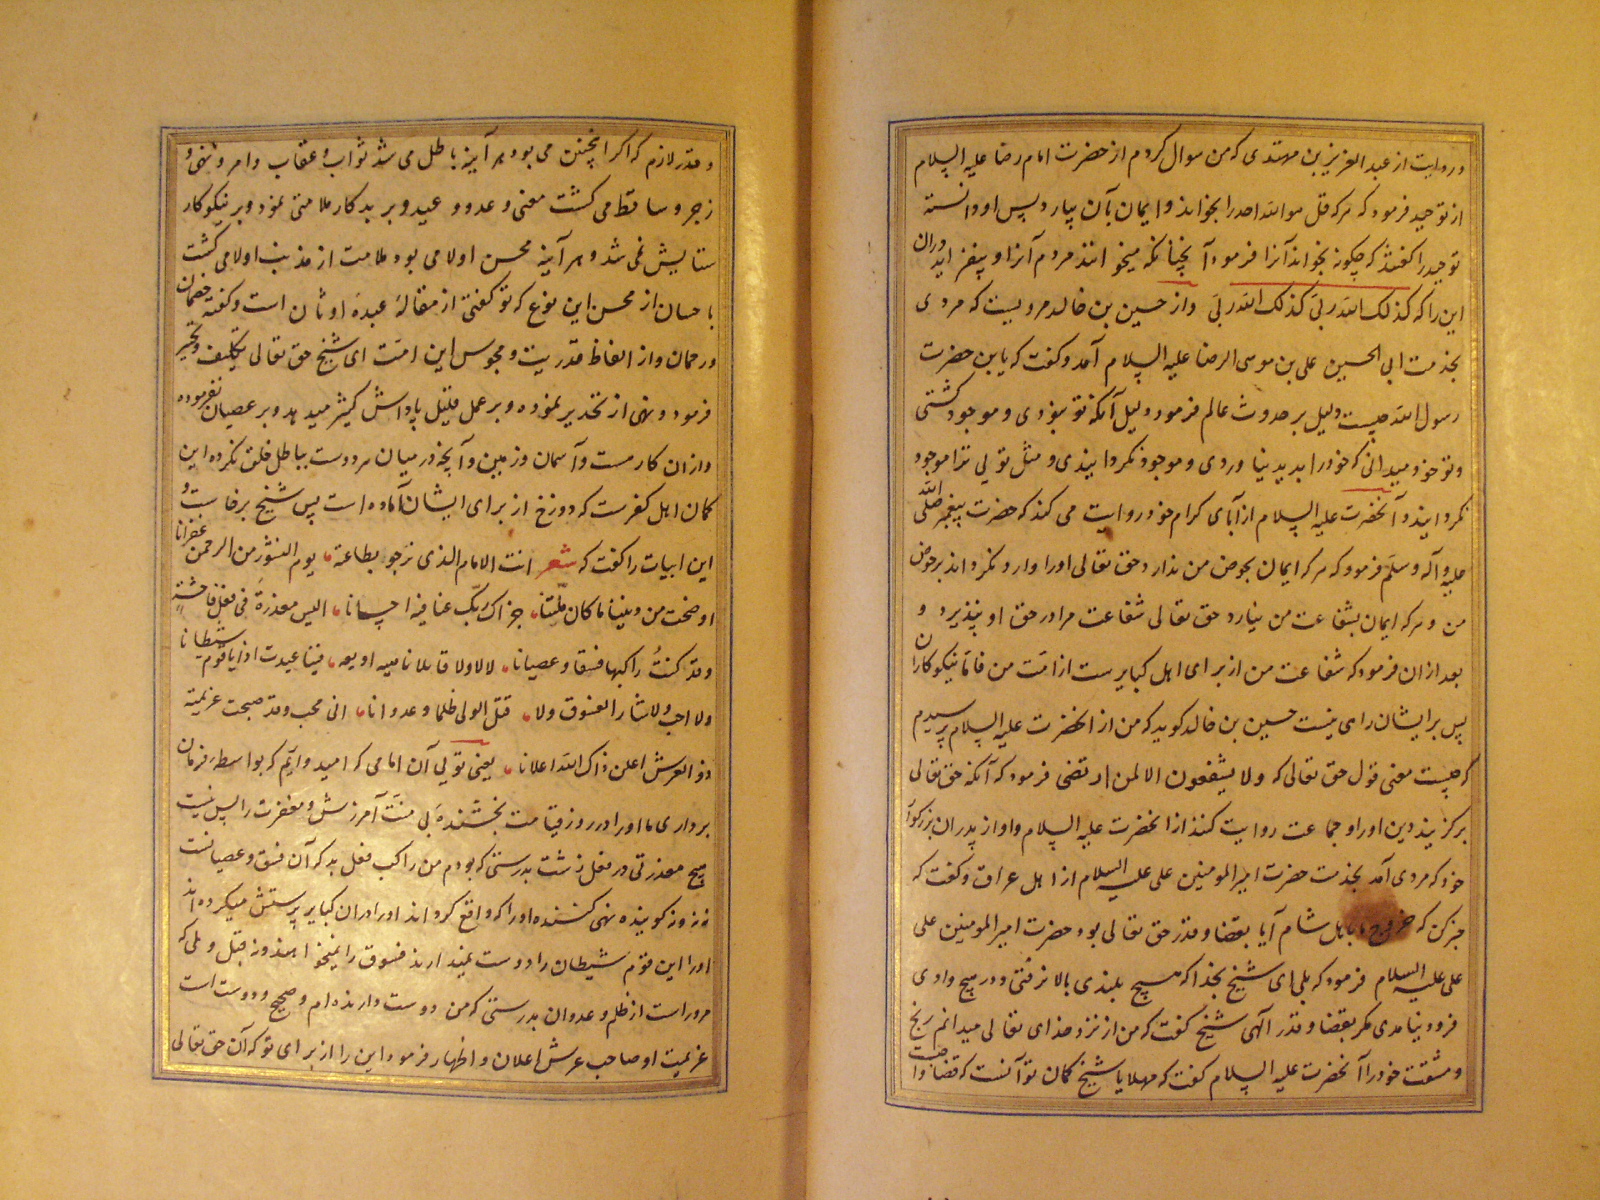 و روایت از عبد العزیز بن مهتدی که من سوال کردم از حضرت امام رضا علیه السلام
از توحید فرمود که هر که قل هو الله احد را بخواند و ایمان بآن بیارد پس او دانسته
توحید را گفتند که چگونه بخواند آنرا فرمود آنچنانکه میخوانند مردم آنرا و بیفزاید دران
این را که کذلک الله ربی کذلک الله ربی و از حسین بن خالد مرویست که مردی
بخدمت ابی الحسین علی بن موسی الرضا علیه السلام آمد و گفت که یا بن حضرت
رسول الله چیست دلیل بر حدوث عالم فرمود دلیل آنکه تو نبودی و موجود گشتی
و تو خود میدانی که خود را پدید نیاوردی و موجود نکردانیدی و مثل تو لی ترا موجود
نکردانید و آنحضرت علیه السلام از آبای کرام خود روایت می کند که حضرت پیغمبر صلی الله
علیه و آله و سلم فرمود که هر که ایمان بحوض من ندارد حق تعالی اورا وارد نکرداند بر حوض
من و هر که ایمان بشفاعت من نیارد حق تعالی شفاعت مرا در حق او نپذیرد و
بعد ازان فرمود که شفاعت من از برای اهل کبایرست از امت من فاما نیکوکاران
پس بر ایشان راهی نیست حسین بن خالد کوید که من از آنحضرت علیه السلام پرسیدم
که چیست معنی قول حق تعالی که ولا یشفعون الا لمن ارتضی فرمود که آنکه حق تعالی
برگزیند دین اورا و جماعت روایت کنند از آنحضرت علیه السلام و او از پدران بزرگوار
خود که مردی آمد بخدمت حضرت امیر المومنین علی علیه السلام از اهل عراق و گفت که
خبر کن که خروج ما باهل شام آیا بقضا و قدر حق تعالی بود حضرت امیر المومنین علی
علی علیه السلام فرمود که بلی ای شیخ بخدا که هیچ بلندی بالا نرفتی و در هیچ وادی
فرود نیامدی مکر بقضا و قدر الهی شیخ گفت که من از نزد خدای تعالی میدانم رنج
و مشقت خود را آنحضرت علیه السلام گفت که مهلا یا شیخ کمان تو آنست که قضا واجبست
و قدر لازم که اگر اینچنین می بود هر آینه باطل می شد ثواب و عقاب و امر و نهی و
زجر و ساقط می گشت معنی و عد و وعید و بر بدکار ملامتی نمود و بر نیکوکار
ستایش نمی شد و هر آینه محسن اولا می بود بملامت از مذنب اولا می گشت
باحسان از محسن این نوع که تو گفتی از مقالهٔ عبدهٔ اوثان است و گفته خصمان
و رحمان و از الفاظ قدریت و مجوس این امت ای شیخ حق تعالی تکلیف و تخییر
فرمود و نهی از تحذیر نموده و بر عمل قلیل پاداش کثیر میدهد و بر عصیان نفرموده
و ازان کارهست و آسمان و زمین و آنچه در میان هر دوست بباطل خلق نکرده این
کمان اهل کفرست که دوزخ از برای ایشان آماده است پس شیخ برخاست و
این ابیات را گفت که شعر انت الامام الذی نرجو بطاعته یوم النشور من الرحمن غفرانا
اوضحت من دیننا ما کان ملتبسا جزاک ربک عنا فیه احسانا الیس معذرة فی فعل فاحشة
و قد کنت راکبها فسقا و عصیانا لا لا ولا قایلا نامیه اوبعه فیها عبدت اذا یا قوم شیطانا
ولا احب ولا شاء الفسوق ولا قتل الولی ظلما و عدوانا انی یحب و قد صحت عزیمته
ذو العرش اعلن ذاک الله اعلانا یعنی تویی آن امامی که امید داریم که بواسطه فرمان
برداری ما اورا در روز قیامت بخشندهٔ بی منت آمرزش و مغفرت را پس نیست
هیچ معذرتی در فعل زشت بدرستی که بودم من راکب فعل بد که آن فسق و عصیانست
نه نزد گوینده نهی کننده اورا که واقع کرداند اورا دران کبایر پرستش میکرده اند
اورا این قوم شیطان را دوست نمیدارند فسوق را نمیخواهند و نه قتل ولی که
مرور است از ظلم و عدوان بدرستی که من دوست دارنده ام و صحیح و دوست است
عزیمت او صاحب عرش اعلان و اظهار فرمود این را از برای تو که آن حق تعالی